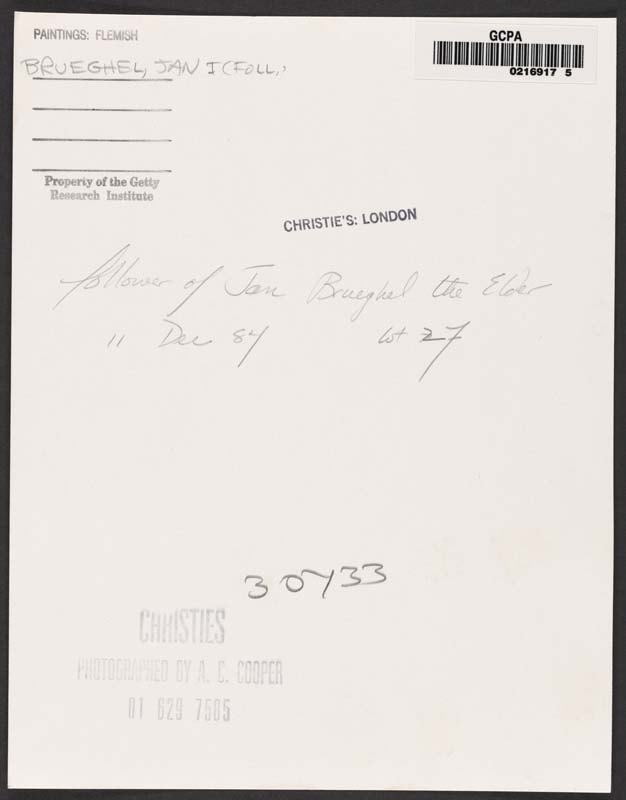 PAINTINGS: FLEMISH
BRUEGHEL, JAN I (FOLL.)
GCPA
0216917 5
Property of the Getty
Research Institute
CHRISTIE'S: LONDON
follower of Jan Brueghel the Elder
11 Dec 84 lot 27
30433
CHRISTIES
PHOTOGRAPHED BY A. C. COOPER
01 629 7585